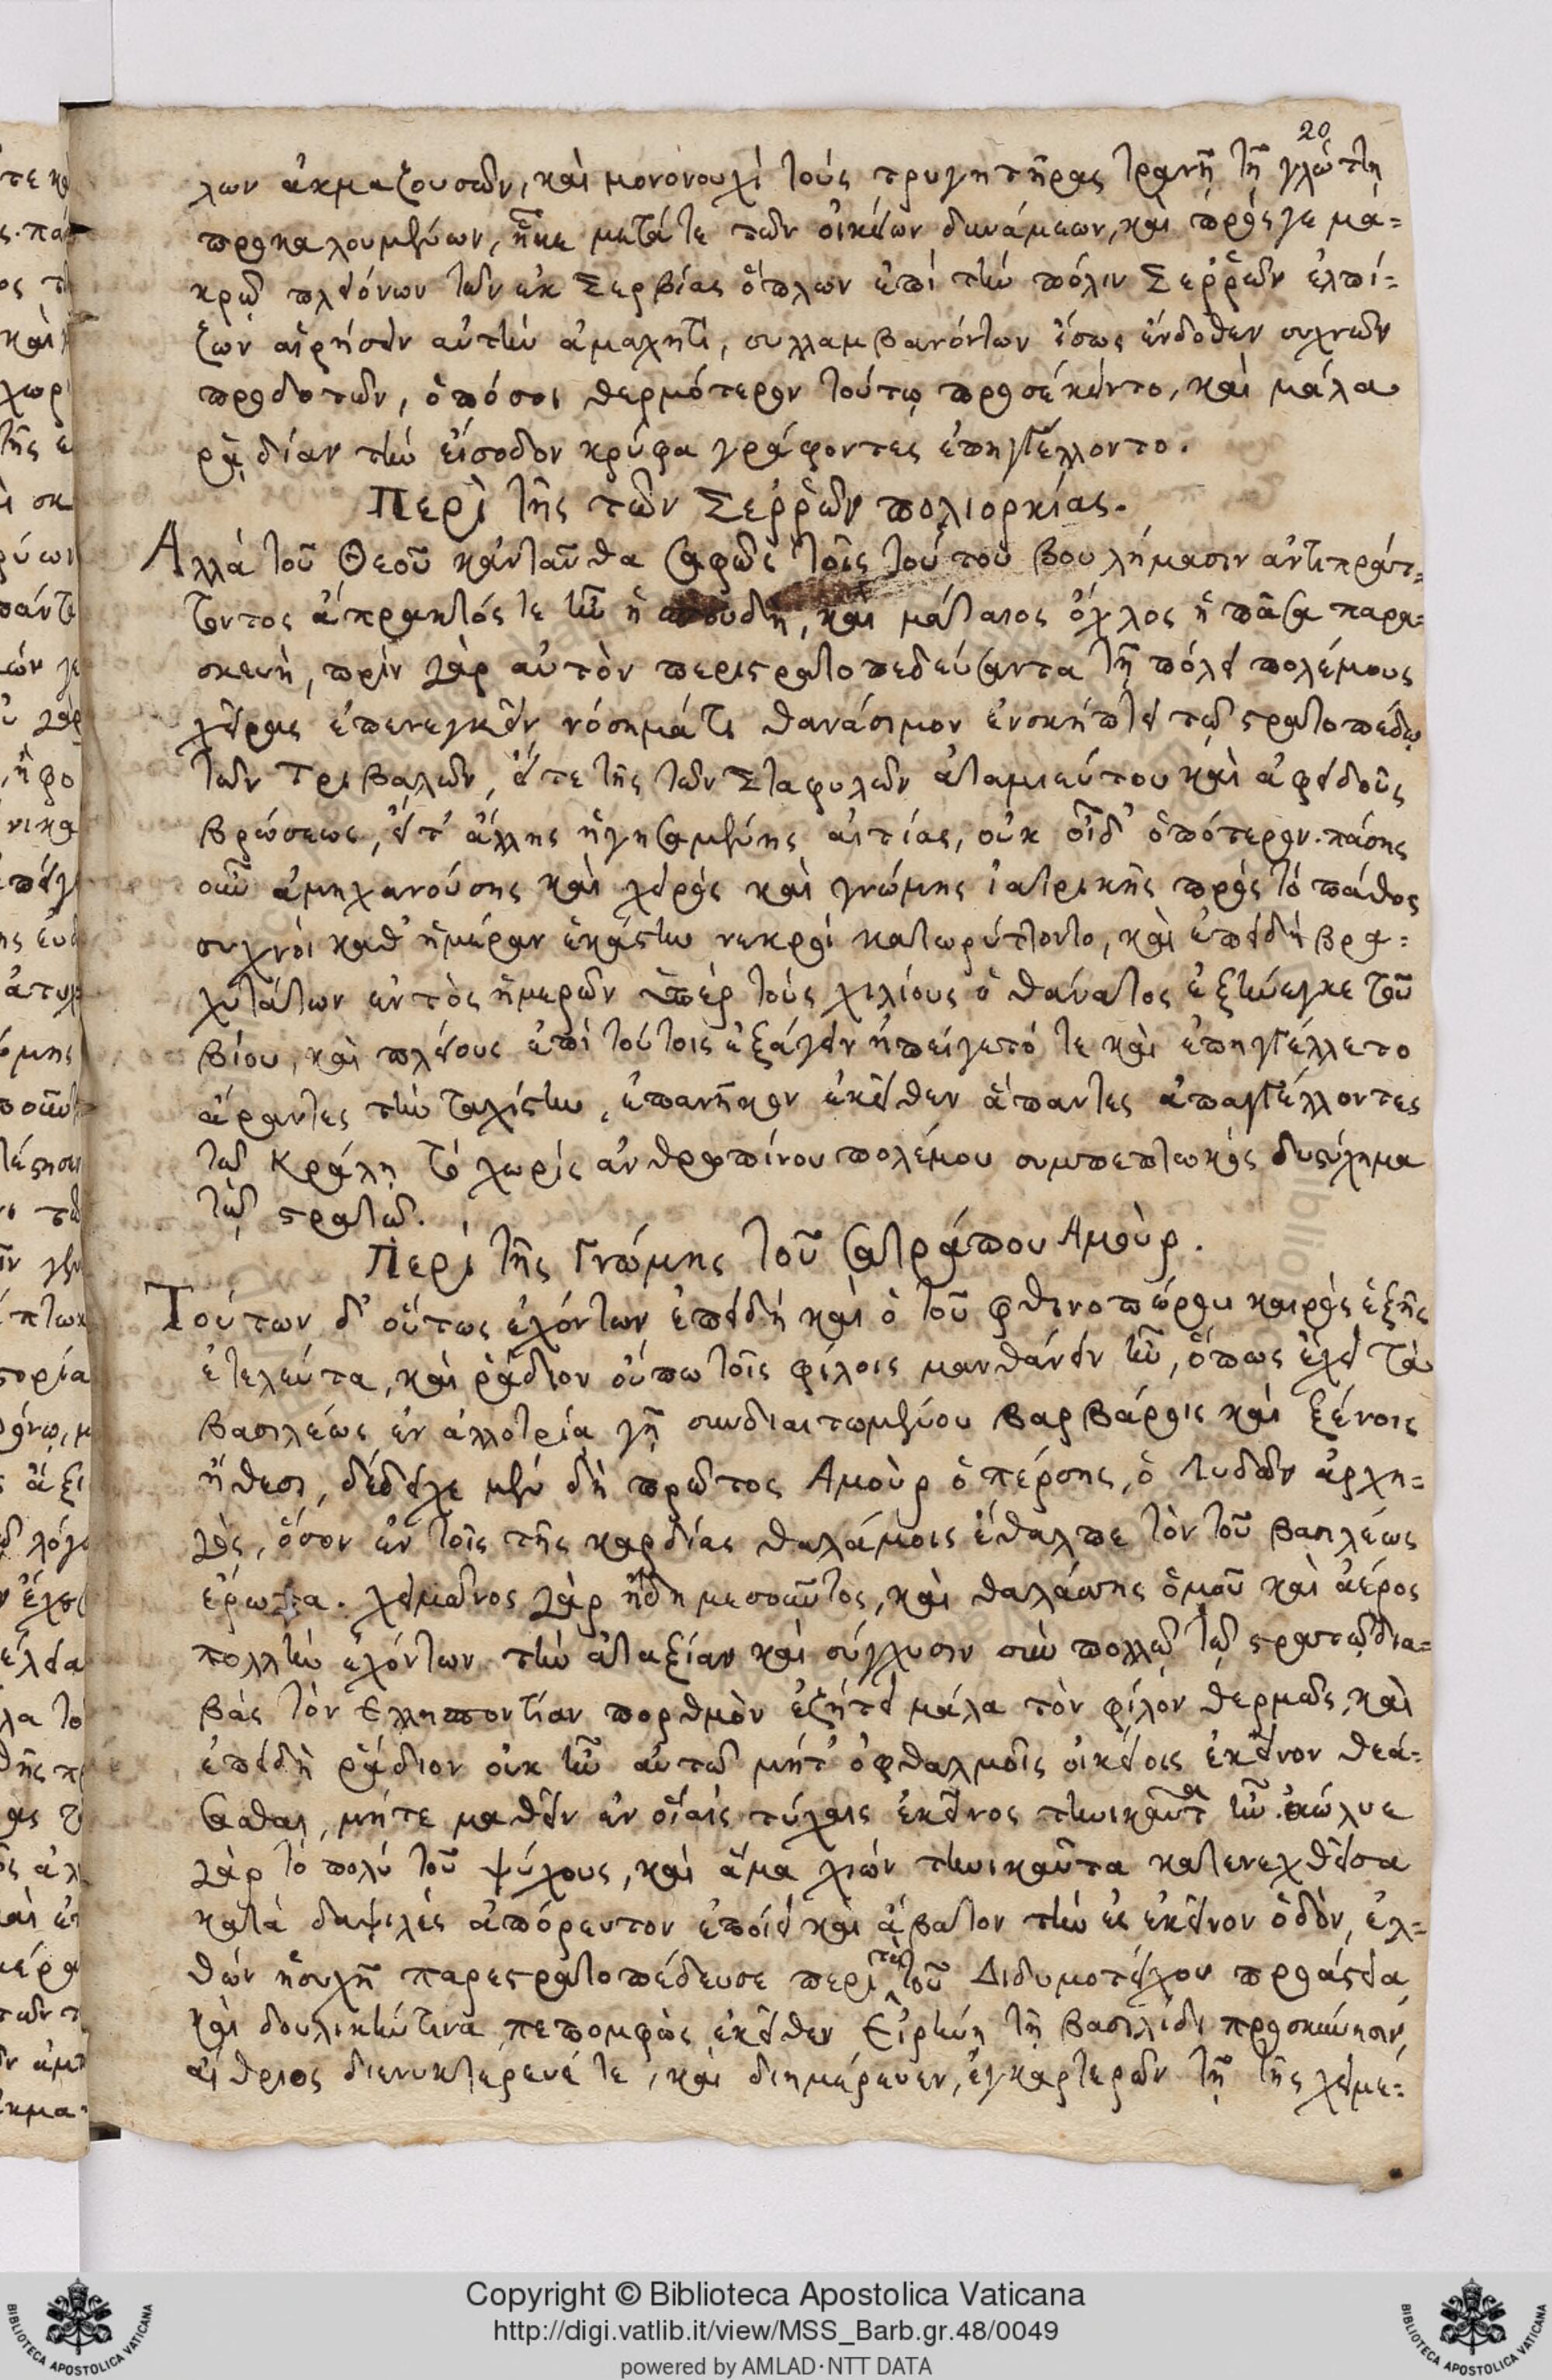 20
λων ἀκμαζουσῶν, καὶ μονονουχὶ τοὺς τρυγητῆρας τρανῇ τῇ γλώττῃ
προκαλουμένων, ἧκε μετά τε τῶν οἰκείων δυνάμεων, καὶ πρός γε μα=
κρῷ πλειόνων τῶν ἐκ Σερβίας ὅπλων ἐπὶ τὴν πόλιν Σεῤῥῶν ἐλπί=
ζων αἱρήσειν αὐτὴν ἀμαχητί, συλλαμβανόντων ἴσως ἔνδοθεν συχνῶν
προδοτῶν, ὁπόσοι θερμότερον τούτῳ προσέκειντο, καὶ μάλα
ῥᾳδίαν τὴν εἴσοδον κρύφα γράφοντες ἐπηγγέλλοντο.
Περὶ τῆς τῶν Σεῤῥῶν πολιορκίας.
Αλλὰ τοῦ Θεοῦ κἀνταῦθα σαφῶς τοῖς τούτου βουλήμασιν ἀντιπράτ=
τοντος ἄπρακτός τε ἦν ἡ σπουδὴ, καὶ μάταιος ὄχλος ἡ πᾶσα παρα=
σκευὴ, πρὶν γὰρ αὐτὸν περιστρατοπεδεύσαντα τῇ πόλει πολέμους
χεῖρας ἐπενεγκεῖν νόσημά τι θανάσιμον ἐνσκήπτει τῷ στρατοπέδῳ
τῶν Τριβαλῶν, εἴτε τῆς τῶν Σταφυλῶν ἀταμιεύτου καὶ ἀφειδοῦς
βρώσεως, εἴτ' ἄλλης ἡγησαμένης αἰτίας, οὐκ οἶδ' ὁπότερον. πάσης
οὖν ἀμηχανούσης καὶ χειρὸς καὶ γνώμης ἰατρικῆς πρὸς τὸ πάθος
συχνοὶ καθ' ἡμέραν ἑκάστην νεκροὶ κατωρύττοντο, καὶ ἐπειδὴ βρα=
χυτάτων ἐντὸς ἡμερῶν ὑπὲρ τοὺς χιλίους ὁ θάνατος ἐξήνεγκε τοῦ
βίου, καὶ πλείους ἐπὶ τούτοις ἐξάγειν ἠπείγετό τε καὶ ἐπηγγέλλετο
ἄραντες τὴν ταχίστην, ἐπανῆκον ἐκεῖθεν ἅπαντες ἀπαγγέλλοντες
τῷ Κράλῃ τὸ χωρὶς ἀνθρωπίνου πολέμου συμπεπτωκὸς δυστύχημα
τῷ στρατῷ.
Περὶ τῆς Γνώμης τοῦ σατράπου Αμοὺρ.
Τούτων δ' οὕτως ἐχόντων ἐπειδὴ καὶ ὁ τοῦ φθινοπώρου καιρὸς ἑξῆς
ἐτελεύτα, καὶ ῥᾴδιον οὔπω τοῖς φίλοις μανθάνειν ἦν, ὅπως ἔχει τὰ
βασιλέως ἐν ἀλλοτρίᾳ γῇ συνδιαιτωμένου βαρβάροις καὶ ξένοις
ἤθεσι, δέδειχε μὲν δὴ πρῶτος Αμοὺρ ὁ πέρσης, ὁ Λυδῶν ἀρχη=
γὸς, ὅσον ἐν τοῖς τῆς καρδίας θαλάμοις ἔθαλπε τὸν τοῦ βασιλέως
ἔρωτα. χειμῶνος γὰρ ἤδη μεσοῦντος, καὶ θαλάττης ὁμοῦ καὶ ἀέρος
πολλὴν ἐχόντων τὴν ἀταξίαν καὶ σύγχυσιν σὺν πολλῷ τῷ στρατῷ δια=
βὰς τὸν Ελλησποντίαν πορθμὸν ἐζήτει μάλα τὸν φίλον θερμῶς, καὶ
ἐπειδὴ ῥᾴδιον οὐκ ἦν αὐτῷ μήτ' ὀφθαλμοῖς οἰκείοις ἐκεῖνον θεά=
σασθαι, μήτε μαθεῖν ἐν οἵαις τύχαις ἐκεῖνος τηνικαῦτα ἦν. ἐκώλυε
γὰρ τὸ πολὺ τοῦ ψύχους, καὶ ἅμα χιὼν τηνικαῦτα κατενεχθεῖσα
κατὰ δαψιλὲς ἀπόρευτον ἐποίει καὶ ἄβατον τὴν εἰς ἐκεῖνον ὁδὸν, ἐλ=
θὼν ἡσυχῇ παρεστρατοπέδευσε περὶ τὰ τοῦ Διδυμοτείχου προάστεια
καὶ δουλικήν τινα πεπομφὼς ἐκεῖθεν Εἰρήνῃ τῇ βασιλίδι προσκύνησιν,
αἴθριος διενυκτέρευέ τε, καὶ διημέρευεν, ἐγκαρτερῶν τῇ τῆς χειμε=